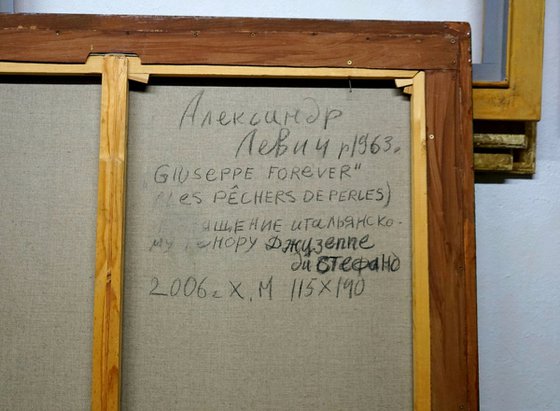 Александр
Левич р 1963г
"GIUSEPPE FOREVER"
(LES PÊCHERS DE PERLES)
ПОСВЯЩЕНИЕ ИТАЛЬЯНСКО-
МУ ТЕНОРУ ДЖУЗЕППЕ
ди СТЕФАНО
2006г Х.М 115Х190